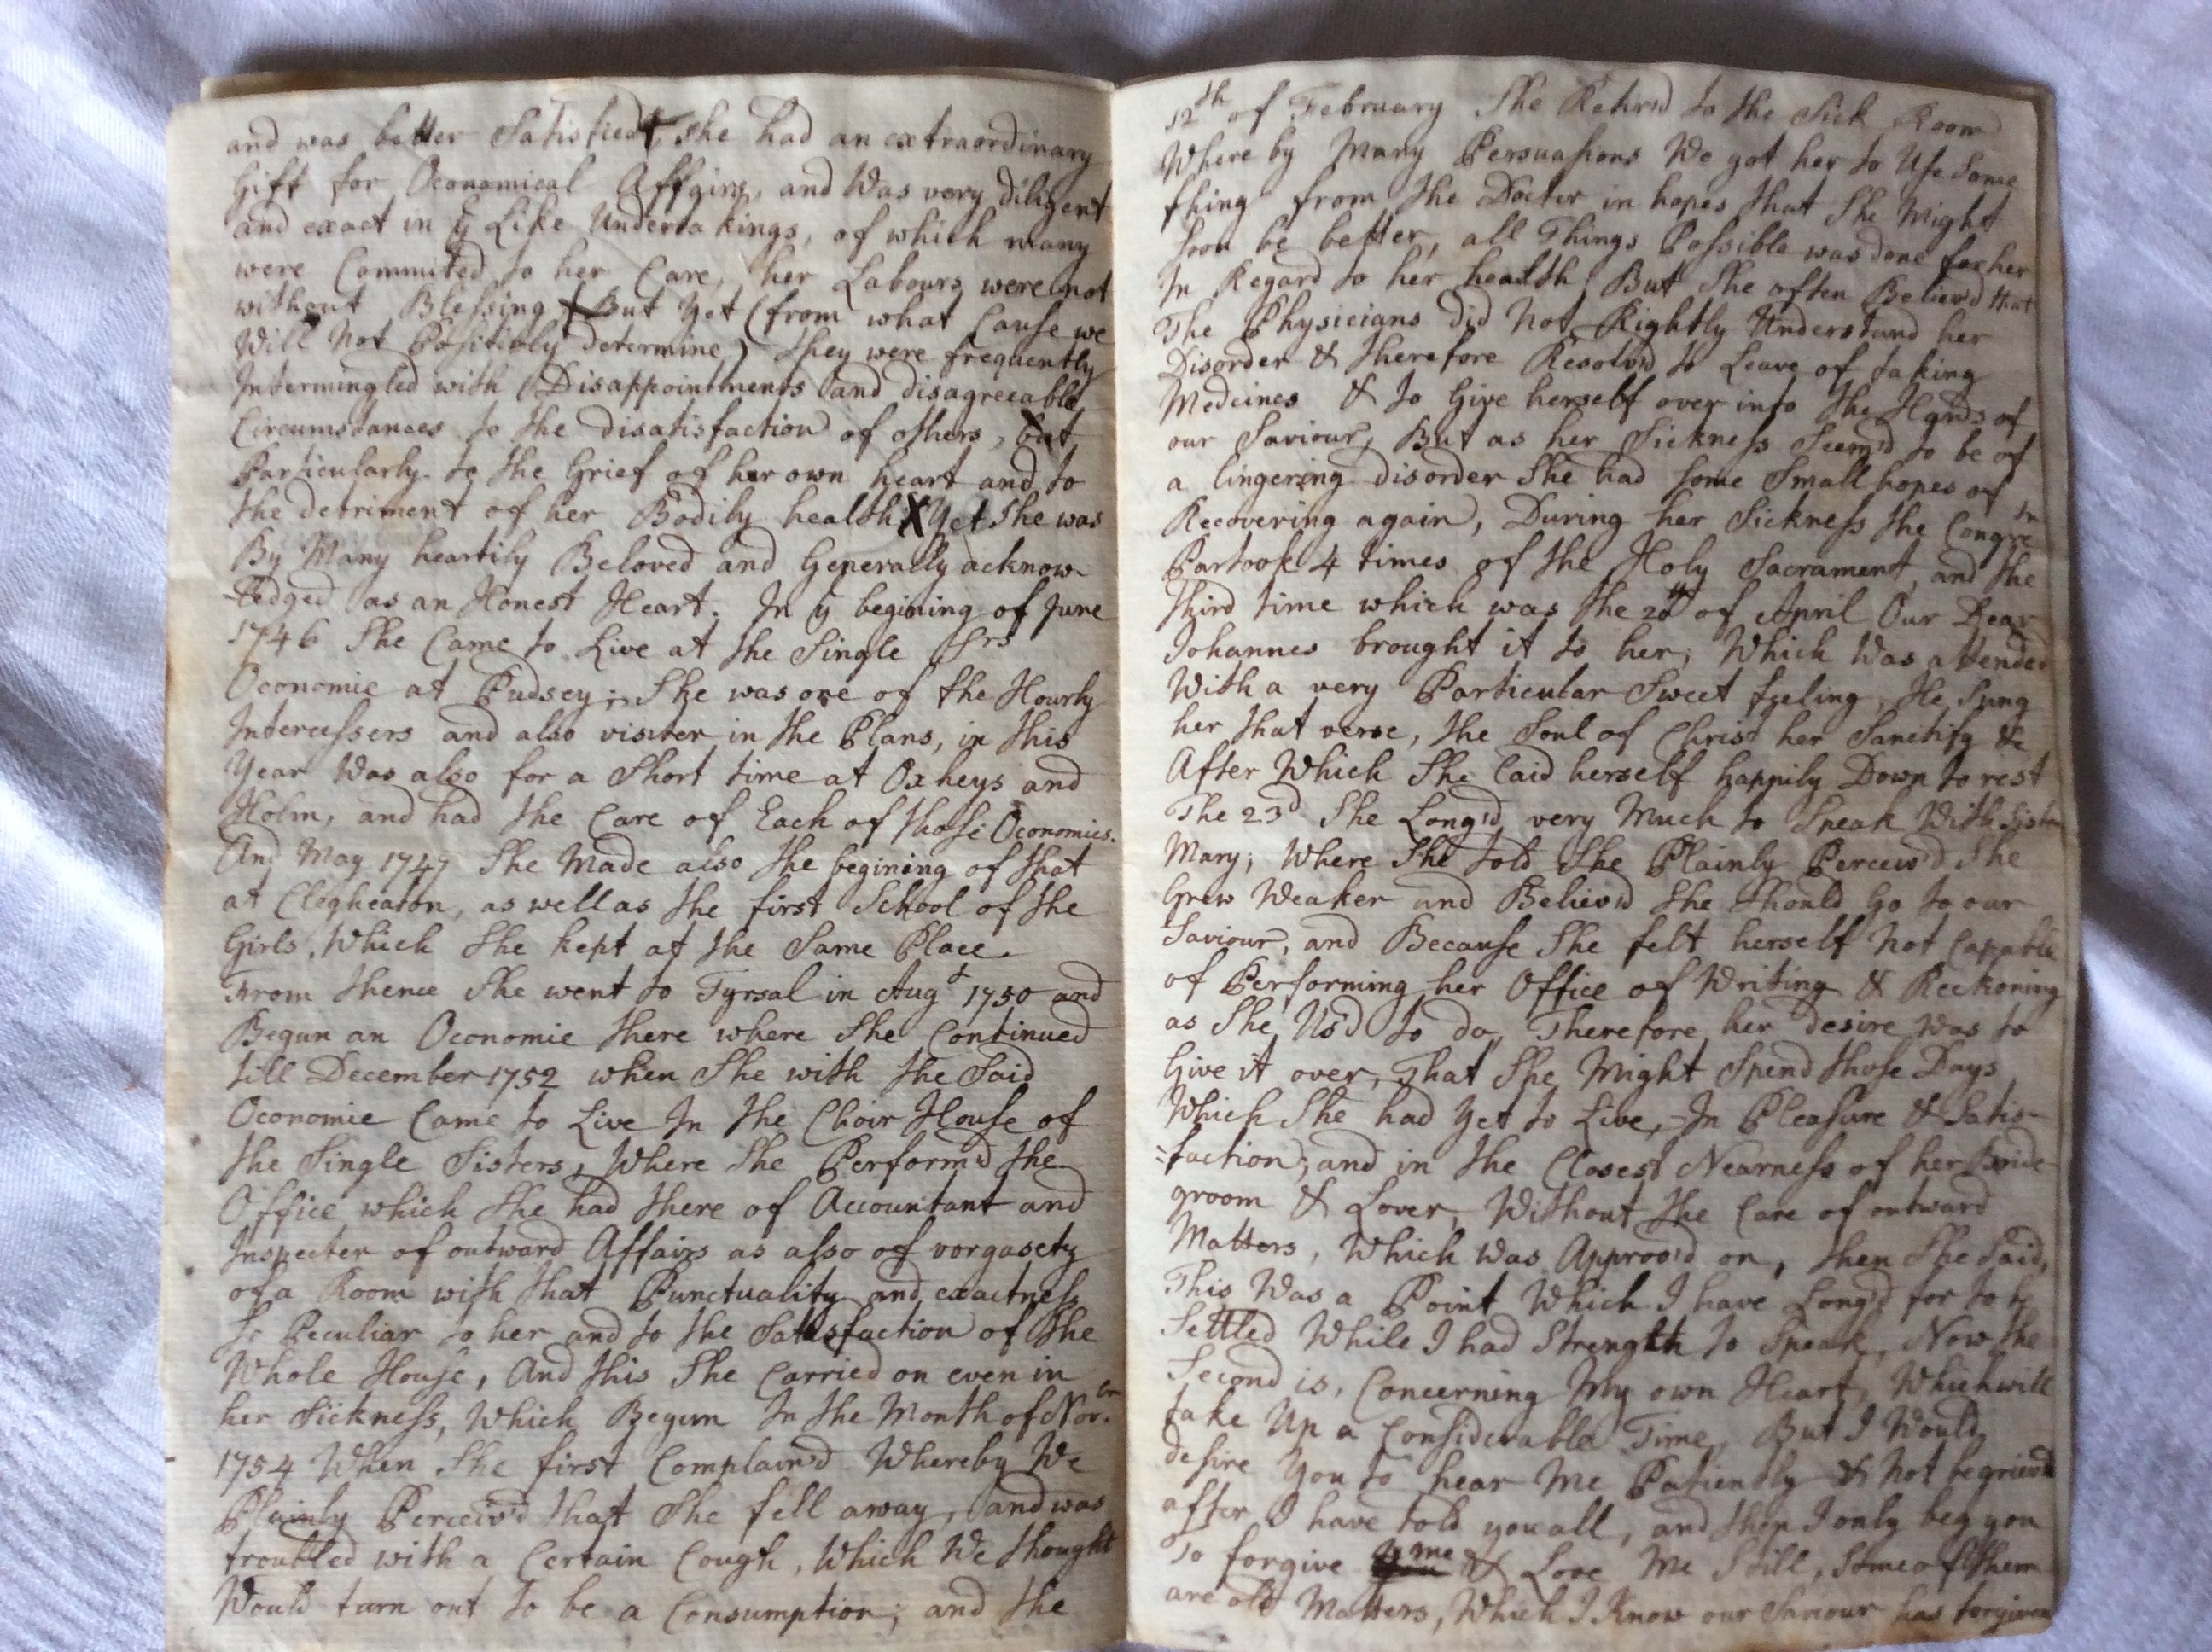 and was better Satisfied, she had an extraordinary
Gift for Oconomical Affairs, and Was very diligent
and exact in ye Like Undertakings, of which many
were Commited to her Care, her Labours were not
without Blessing But yet (from what Cause we
Will Not Positivly determine) they were frequently
Intermingled with Disappointments and disagreeable
Circumstances to the disatisfaction of others, but
Particularly to the Grief of her own heart and to
the detriment of her Bodily health X Yet She was
By Many heartily Beloved and Generally acknow-
-ledged as an Honest Heart. In ye begining of June
1746 She Came to Live at the Single Srs
Oconomie at Pudsey; She was one of the Hourly
Intercessers and also visiter in the Plans, in this
Year Was also for a Short time at Oxheys and
Holm, and had the Care of Each of those Oconomies.
And May 1747 She Made also the begining of that
at Clegheaton, as well as the first School of the
Girls, Which She kept at the Same Place
From thence She went to Tyrsal in Augt 1750 and
Begun an Oconomie there where She Continued
till December 1752 when She with the Said
Oconomie Came to Live In the Choir House of
the Single Sisters, Where She Perform'd the
Office which She had there of Accountant and
Inspecter of outward Affairs as also of vorgasety
of a Room with that Punctuality and exactness
So Peculiar to her and to the Satisfaction of the
Whole House, And this She Carried on even in
her Sickness, Which Begun In the Month of Novbr.
1754 When She first Complain'd Whereby We
Plainly Perceiv'd that She fell away, and was
troubled with a Certain Cough, Which We thought
Would turn out to be a Consumption; and the
12th of February She Retir'd to the Sick Room
Where by Many Persuasions We got her to Use Some
thing from the Docter in hopes that She Might
Soon be better, all Things Possible was done for her
In Regard to her health But She often Believ'd that
The Physicians did Not Rightly Understand her
Disorder & therefore Resolv'd to Leave of taking
Medeines & to Give herself over into the Hands of
our Saviour, But as her Sickness Seem'd to be of
a lingering disorder She had Some Small hopes of
Recovering again, During her Sickness the Congrn
Partook 4 times of the Holy Sacrament, and the
third time which was the 20th of April Our Dear
Johannes brought it to her; Which Was attended
With a very Particular Sweet feeling, He Sung
her that verse, the Soul of Christ her Sanctify &c
After Which She laid herself happily Down to rest
The 23d She Long'd very Much to Speak With Sister
Mary; Where She told She Plainly Perceiv'd She
Grew Weaker and Believ'd She Should Go to our
Saviour, and Because She felt herself Not Cappable
of Performing her Office of Writing & Reckoning
as She Us'd to do, Therefore her desire Was to
Give it over, That She Might Spend those Days
Which She had Yet to Live, In Pleasure & Satis-
=faction; and in the Closest Nearness of her Bride-
groom & Lover, Without the Care of outward
Matters, Which Was Approv'd on, then She Said,
This Was a Point Which I have Long'd for to be
Settled While I had Strength to Speak, Now the
Second is, Concerning My own Heart, Which will
take Up a Considerable Time, But I Would
desire You to hear Me Patiently & Not be griev'd
after I have told you all, and then I only beg you
To forgive me & Love Me Still, Some of them
are old Matters, Which I Know our Saviour has forgiven